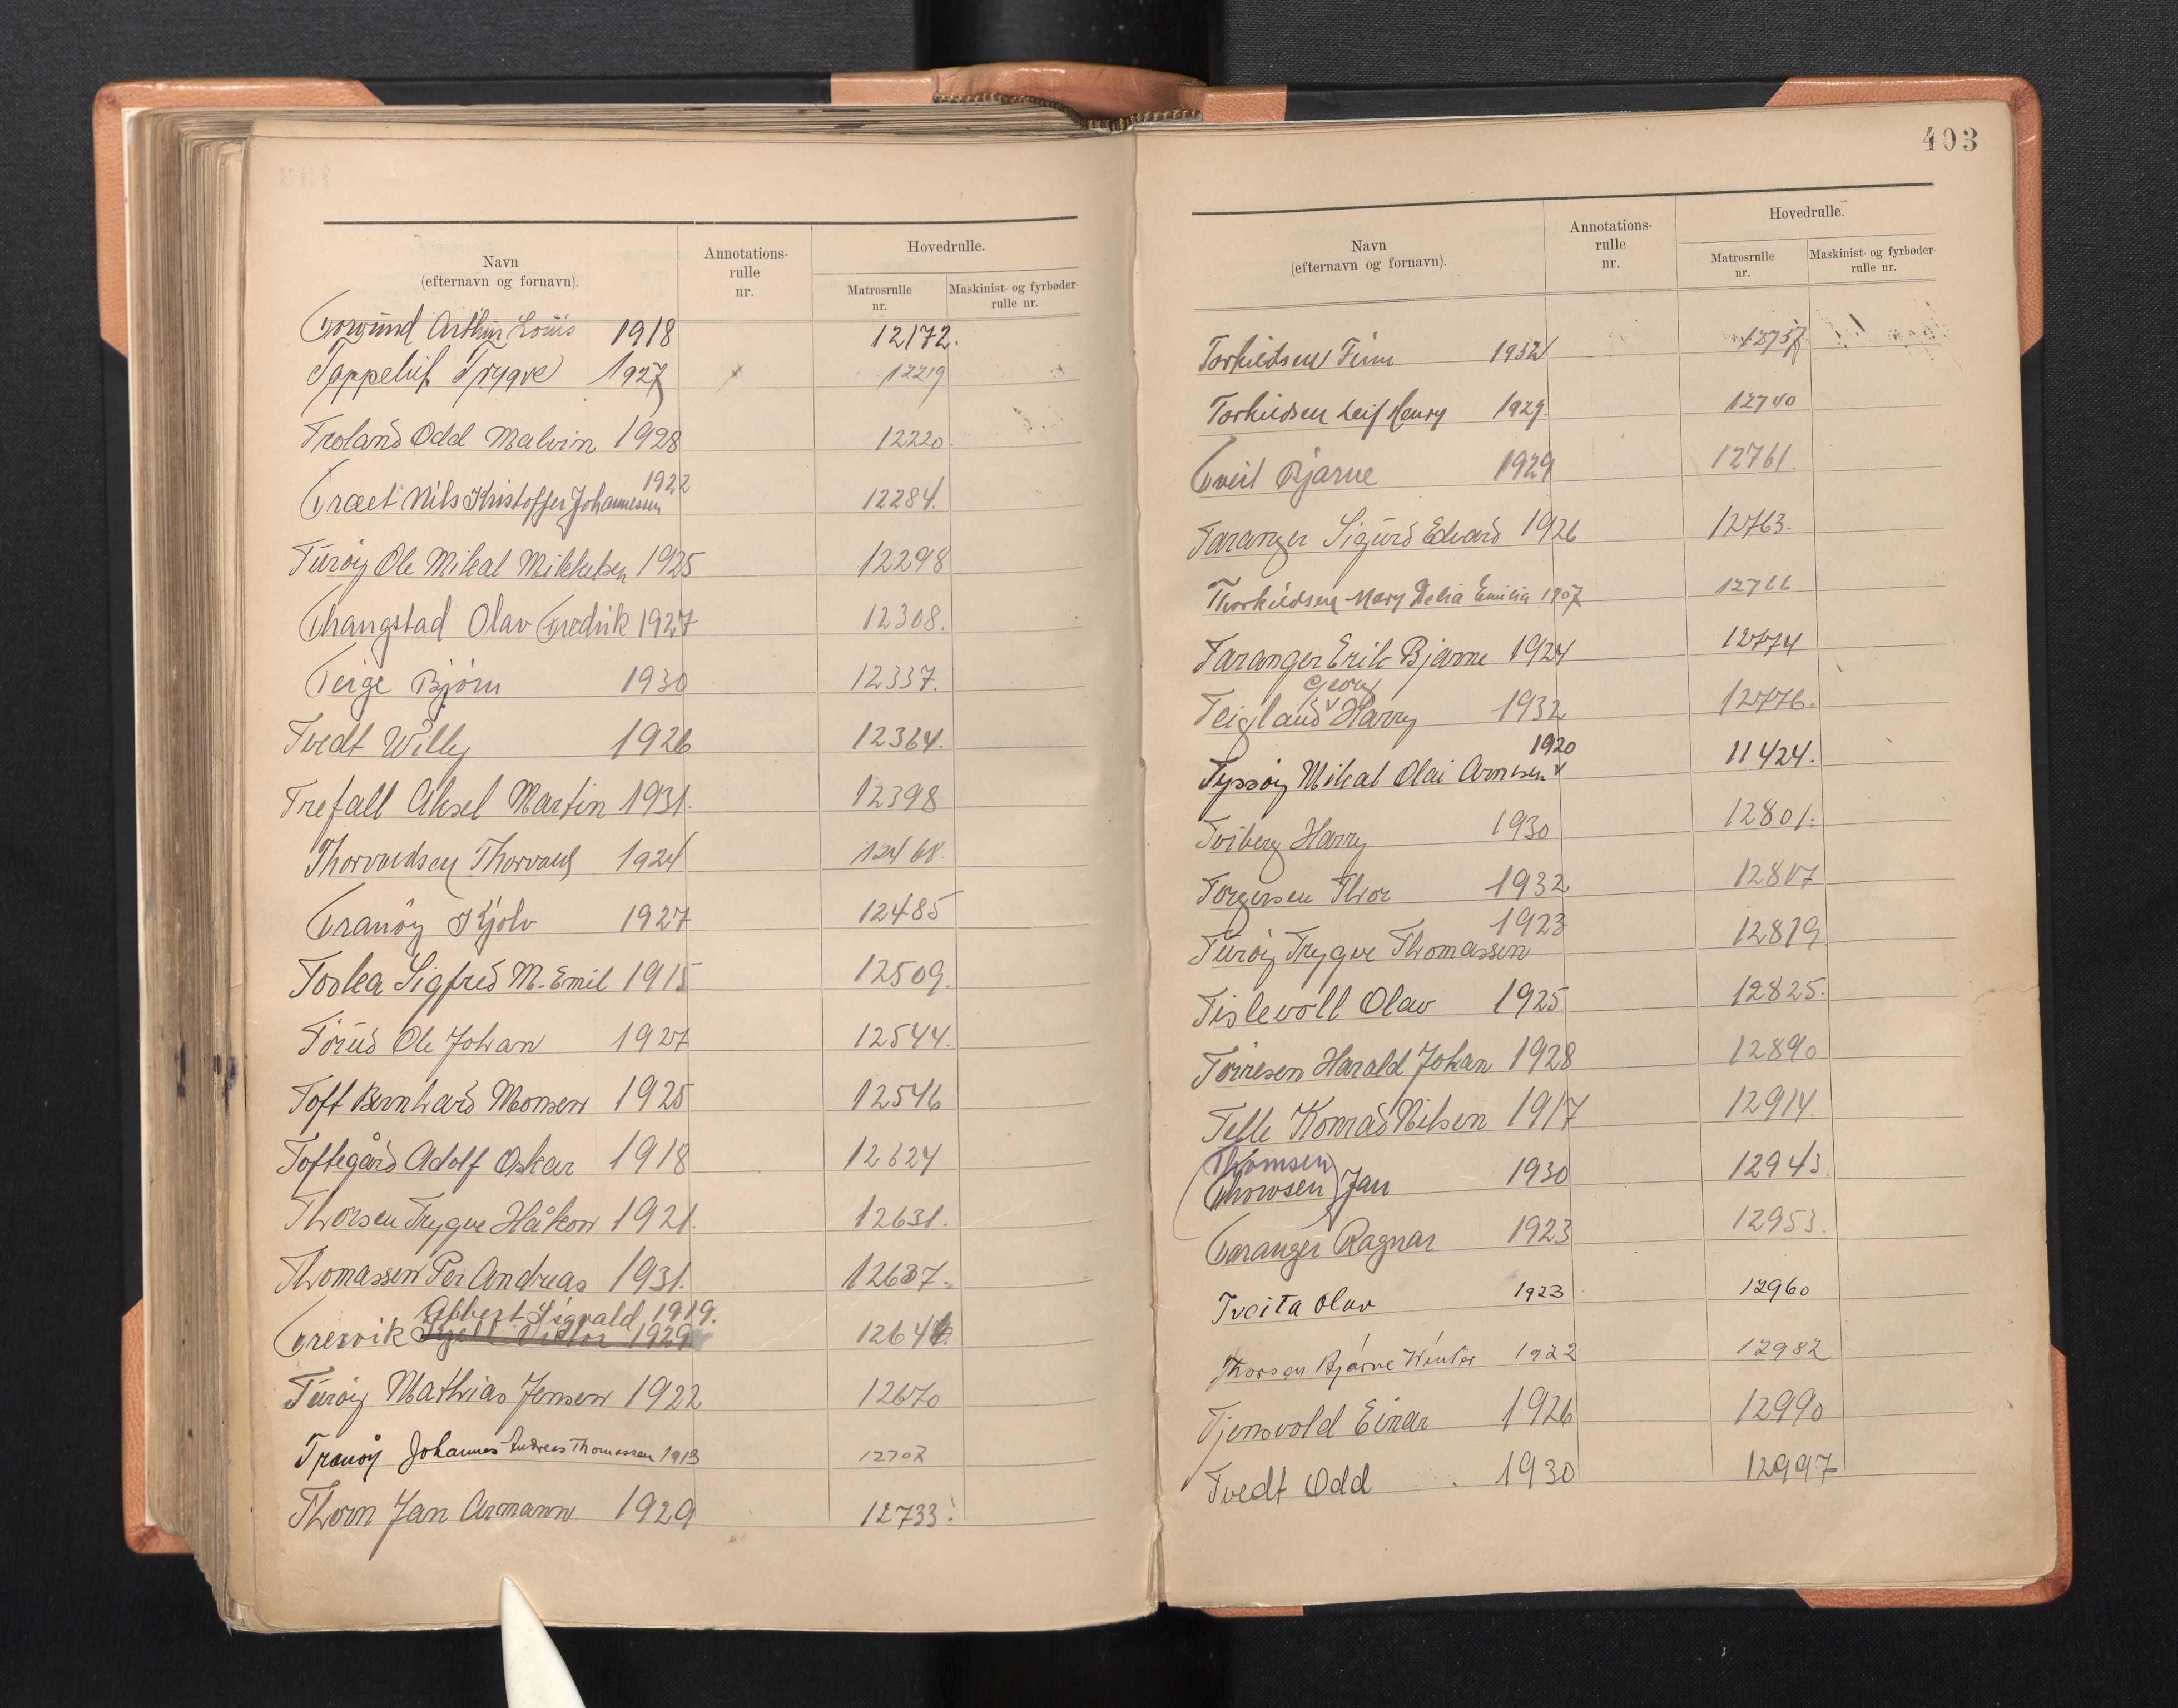 Navn
(efternavn og fornavn).
Annotations-
rulle
nr.
Hovedrulle.
Matrosrulle
nr.
Maskinist- og fyrbøder-
rulle nr.
Arthur Louis 1918 12172.
Trygve 1927 x 12219
Troland Odd Malvin 1928 12220.
1922
Træet Nils Kristoffer Johannessen 12284.
Turøy Ole Mikal Mikkelsen 1925 12298
Thangstad Olav Fredrik 1927 12308.
Teige Bjørn 1930 12337.
Tvedt Willy 1926 12364.
Trefall Aksel Martin 1931. 12398
Thorvaldsen Thorvald 1924 12468.
Tranøy Kjolv 1927 12485
Toska Sigfred M. Emil 1915 12509.
Ole Johan 1927 12544.
Toft Bernhard Monsen 1925 12546
Toftegård Adolf Oskar 1918 12624
Thorsen Trygve Håkon 1921. 12631.
Thomassen Per Andreas 1931. 12637.
Albert Sigvald 1919.
Tresvik Kjell Viktor 1929 12646.
Turøy Mathias Jensen 1922 12670
Tranøy Johannes Andreas Thomassen 1913 12707
Thorn Jan Armann 1929 12733.
403
Navn
(efternavn og fornavn).
Annotations-
rulle
nr.
Hovedrulle.
Matrosrulle
nr.
Maskinist- og fyrbøder-
rulle nr.
Torkildsen Finn 1932 12737
Torkildsen Leif Henry 1929. 12740
Tveit Bjarne 1929 12761.
Taranger Sigurd Edvard 1926 12763.
Thorkildsen Mary Delia Emilia 1907 12766
Taranger Erik Bjarne 1924 12774
Georg
Teigland v Harry 1932 12776.
1920
Tyssøy Mikal Olai Arnesen v 11424.
Tviberg Harry 1930 12801.
Torgersen Thor 1932 12807
1923
Turøy Trygve Thomassen 12819
Tislevoll Olav 1925 12825.
Tørresen Harald Johan 1928 12890
Telle Konrad Nilsen 1917 12914.
Thomsen
(Thorsen) Jan 1930 12943.
Taranger Ragnar 1923 12953.
Tveita Olav 1923 12960
Thorsen Bjarne Winter 1922 12982
Tjensvold Einar 1926 12990
Tvedt Odd 1930 12997